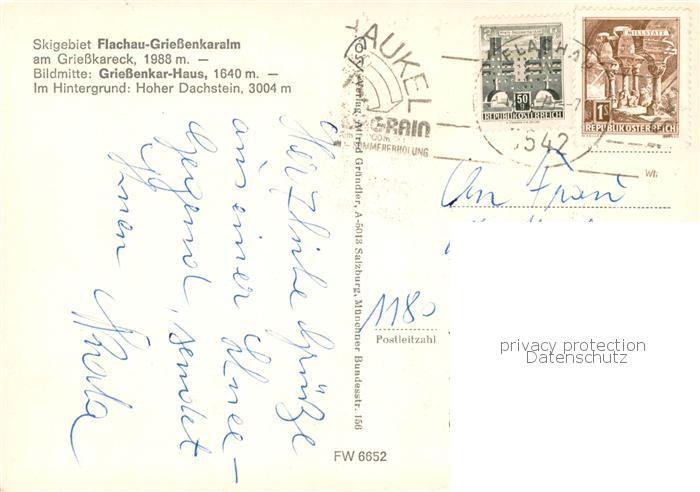 Skigebiet Flachau-Grießenkaralm
am Grießkareck, 1988 m. —
Bildmitte: Grießenkar-Haus, 1640 m. —
Im Hintergrund: Hoher Dachstein, 3004 m
Herzliche Grüße
aus einer Schnee-
gegend, sendet
Ihnen
Verlag: Alfred Gründler, A-5013 Salzburg, Münchner Bundesstr. 156
AUKEL
RAIN
SOMMERERHOLUNG
5542
50 g
REPUBLIK ÖSTERREICH
MILLSTATT
1 S
REPUBLIK ÖSTERREICH
An Frau
1180
Postleitzahl
privacy protection
Datenschutz
FW 6652